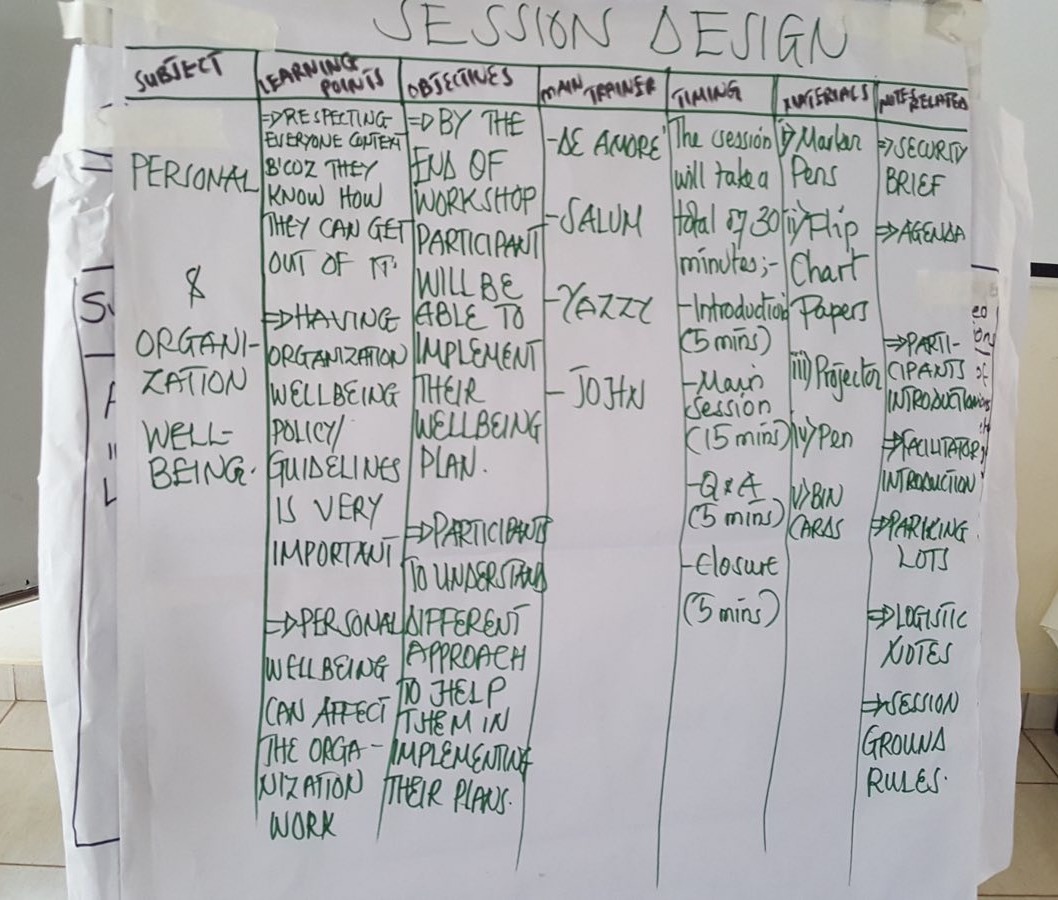 SESSION DESIGN
SUBJECT
PERSONAL
&
ORGANI-
ZATION
WELL-
BEING.
LEARNING
POINTS
⇒RESPECTING
EVERYONE CONTEXT
B'COZ THEY
KNOW HOW
THEY CAN GET
OUT OF IT.
⇒HAVING
ORGANIZATION
WELLBEING
POLICY/
GUIDELINES
IS VERY
IMPORTANT
⇒PERSONAL
WELLBEING
CAN AFFECT
THE ORGA-
NIZATION
WORK
OBJECTIVES
⇒BY THE
END OF
WORKSHOP
PARTICIPANT
WILL BE
ABLE TO
IMPLEMENT
THEIR
WELLBEING
PLAN.
⇒PARTICIPANTS
TO UNDERSTAND
DIFFERENT
APPROACH
TO HELP
THEM IN
IMPLEMENTING
THEIR PLANS.
MAIN TRAINER
-DE AMORE'
-SALUM
-YAZZY
-JOHN
TIMING
The session
will take a
total of 30
minutes;-
-Introduction
(5 mins)
-Main
session
(15 mins)
-Q & A
(5 mins)
-Closure
(5 mins)
MATERIALS
i) Marker
Pens
ii) Flip
Chart
Papers
iii) Projector
iv) Pen
v) BIN
CARDS
NOTES RELATED
⇒SECURITY
BRIEF
⇒AGENDA
⇒PARTI-
CIPANTS
INTRODUCTION
⇒FACILITATOR
INTRODUCTION
⇒PARKING
LOTS
⇒LOGISTIC
NOTES
⇒SESSION
GROUND
RULES.